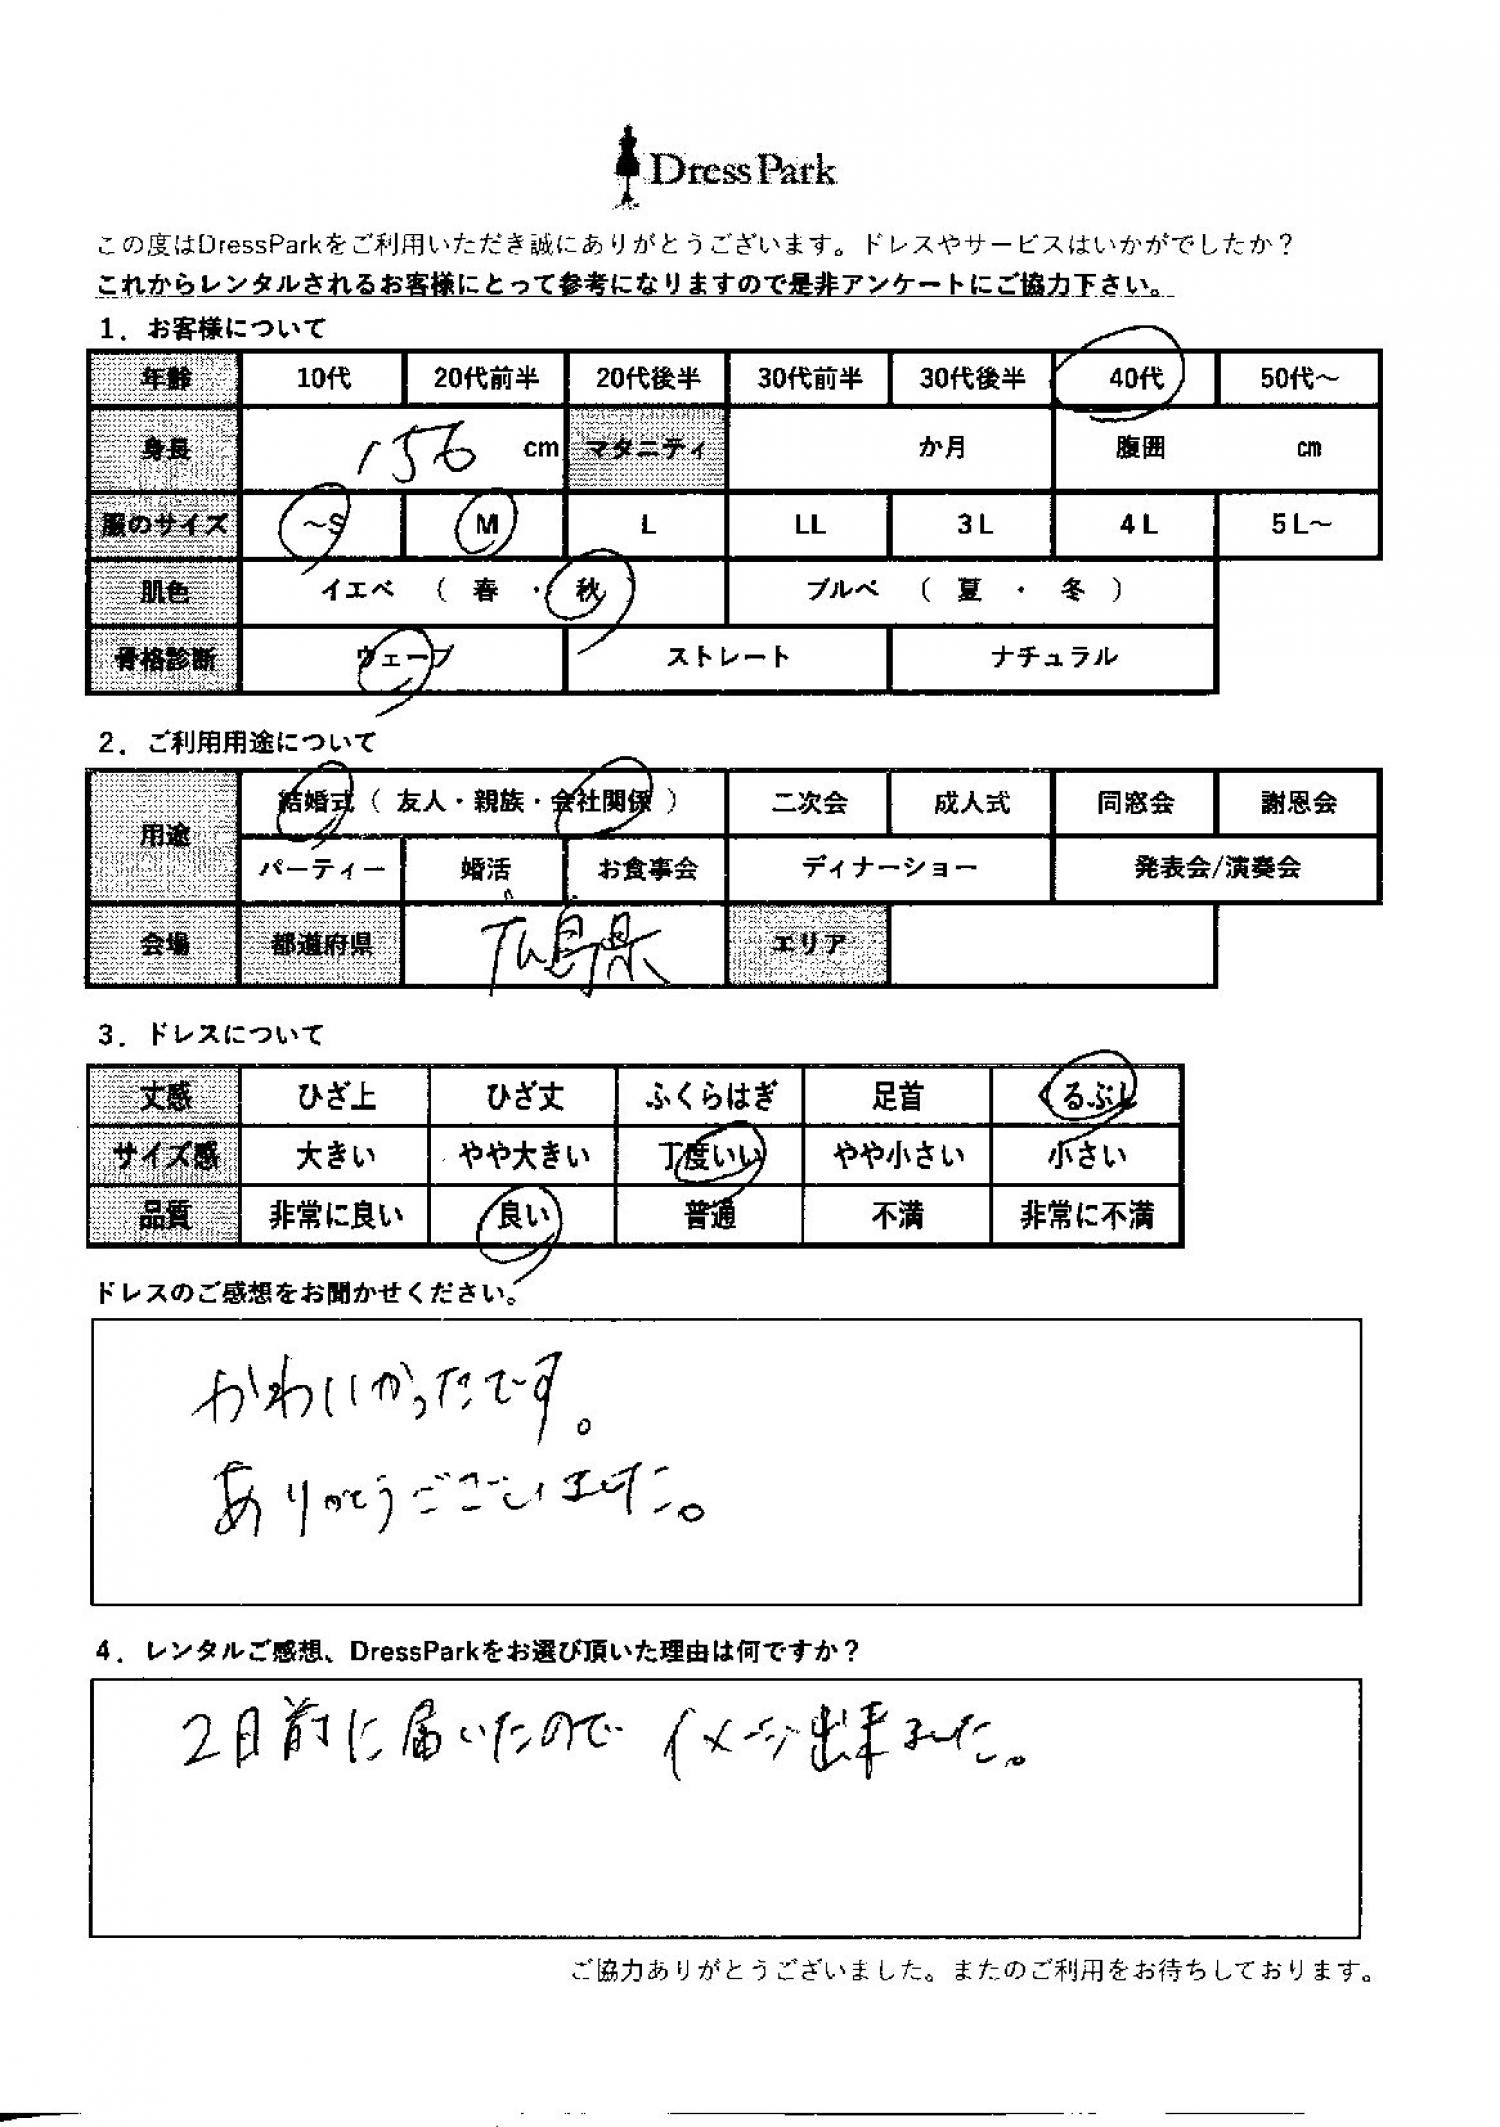 DressPark
この度はDressParkをご利用いただき誠にありがとうございます。ドレスやサービスはいかがでしたか？
これからレンタルされるお客様にとって参考になりますので是非アンケートにご協力下さい。
1．お客様について
年齢 10代 20代前半 20代後半 30代前半 30代後半 40代 50代～
身長 156 cm マタニティ か月 腹囲 cm
服のサイズ ～S M L LL 3L 4L 5L～
肌色 イエベ （ 春 ・ 秋 ） ブルベ （ 夏 ・ 冬 ）
骨格診断 ウェーブ ストレート ナチュラル
2．ご利用用途について
用途 結婚式（ 友人・親族・会社関係 ） 二次会 成人式 同窓会 謝恩会
パーティー 婚活 お食事会 ディナーショー 発表会/演奏会
会場 都道府県 広島県 エリア
3．ドレスについて
丈感 ひざ上 ひざ丈 ふくらはぎ 足首 くるぶし
サイズ感 大きい やや大きい 丁度いい やや小さい 小さい
品質 非常に良い 良い 普通 不満 非常に不満
ドレスのご感想をお聞かせください。
かわいかったです。
ありがとうございました。
4．レンタルご感想、DressParkをお選び頂いた理由は何ですか？
2日前に届いたので イメージ出来ました。
ご協力ありがとうございました。またのご利用をお待ちしております。